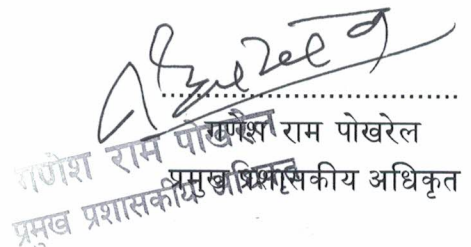 गणेश राम पोखरेल
प्रमुख प्रशासकीय अधिकृत
गणेश राम पोखरेल
प्रमुख प्रशासकीय अधिकृत